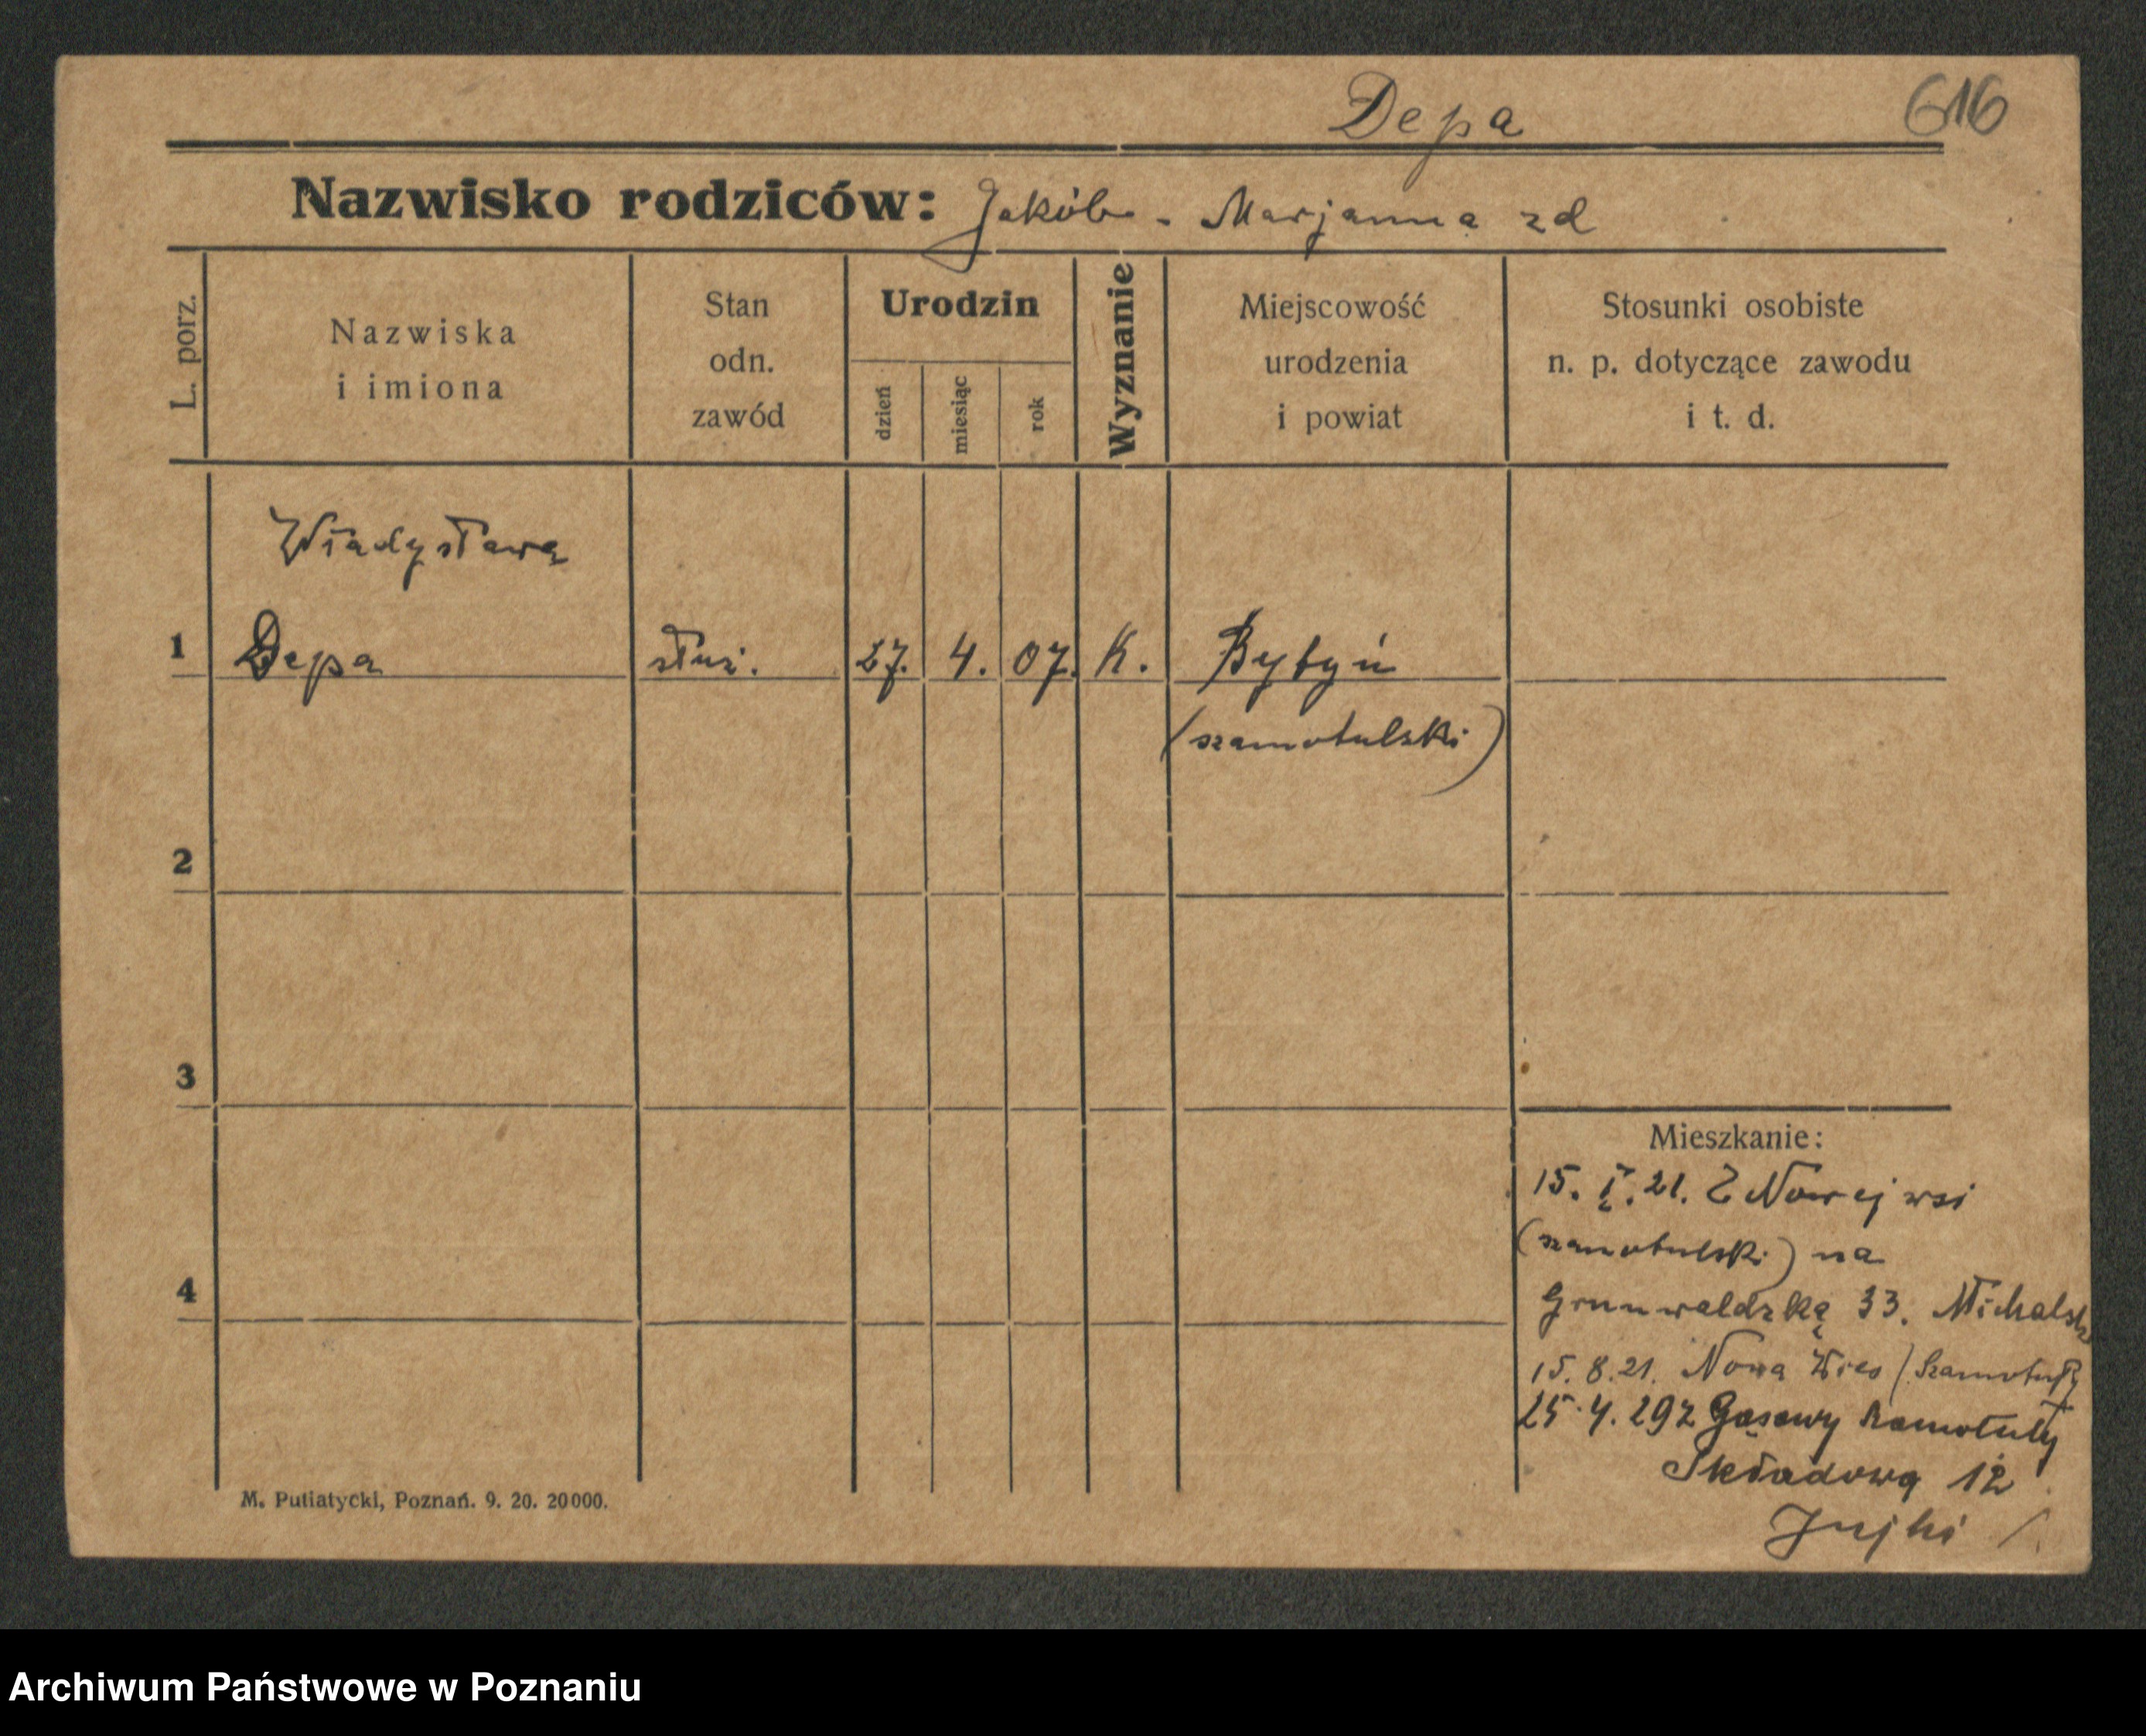 Depa
616
Nazwisko rodziców: Jakób - Marjanna zd
L. porz.
Nazwiska
i imiona
Stan
odn.
zawód
Urodzin
dzień
miesiąc
rok
Wyznanie
Miejscowość
urodzenia
i powiat
Stosunki osobiste
n. p. dotyczące zawodu
i t. d.
Władysława
1 Depa służ. 27. 4. 07. K. Bytyń
(szamotulski)
2
3
4
Mieszkanie:
15. I. 21. Z Nowej wsi
(szamotulski) na
Grunwaldzką 33. Michalsk
15. 8. 21. Nowa Wies (Szamotuły
25.4.29 z Gąsawy Szamotuły
Składowa 12
M. Putiatycki, Poznań. 9. 20. 20000.
Archiwum Państwowe w Poznaniu